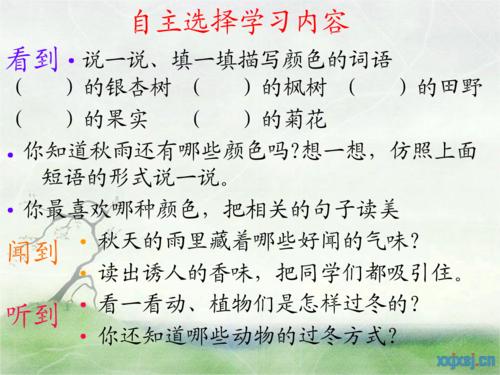 自主选择学习内容
看到•说一说、填一填描写颜色的词语
(    )的银杏树 (    )的枫树 (    )的田野
(    )的果实 (    )的菊花
•你知道秋雨还有哪些颜色吗?想一想,仿照上面
短语的形式说一说。
•你最喜欢哪种颜色,把相关的句子读美
闻到
•秋天的雨里藏着哪些好闻的气味?
•读出诱人的香味,把同学们都吸引住。
听到
•看一看动、植物们是怎样过冬的?
•你还知道哪些动物的过冬方式?
xxjxsj.cn